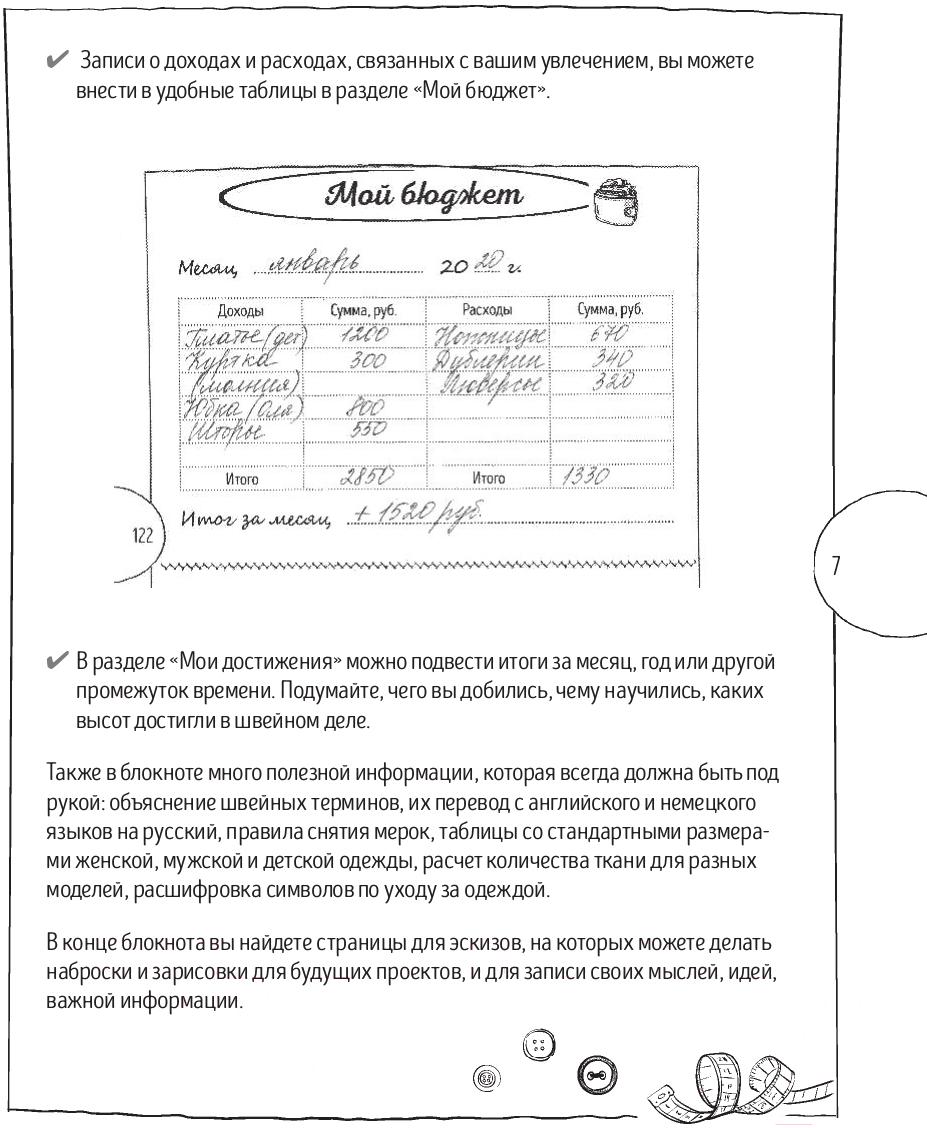 ✔ Записи о доходах и расходах, связанных с вашим увлечением, вы можете
внести в удобные таблицы в разделе «Мой бюджет».
Мой бюджет
Месяц январь 2020 г.
Доходы Сумма, руб. Расходы Сумма, руб.
Платье (дет) 1200 Ножницы 670
Куртка 300 Дублерин 340
(молния) Люверсы 320
Юбка (Оля) 800
Шторы 550
Итого 2850 Итого 1330
Итог за месяц + 1520 руб.
122
7
✔ В разделе «Мои достижения» можно подвести итоги за месяц, год или другой
промежуток времени. Подумайте, чего вы добились, чему научились, каких
высот достигли в швейном деле.
Также в блокноте много полезной информации, которая всегда должна быть под
рукой: объяснение швейных терминов, их перевод с английского и немецкого
языков на русский, правила снятия мерок, таблицы со стандартными размера-
ми женской, мужской и детской одежды, расчет количества ткани для разных
моделей, расшифровка символов по уходу за одеждой.
В конце блокнота вы найдете страницы для эскизов, на которых можете делать
наброски и зарисовки для будущих проектов, и для записи своих мыслей, идей,
важной информации.